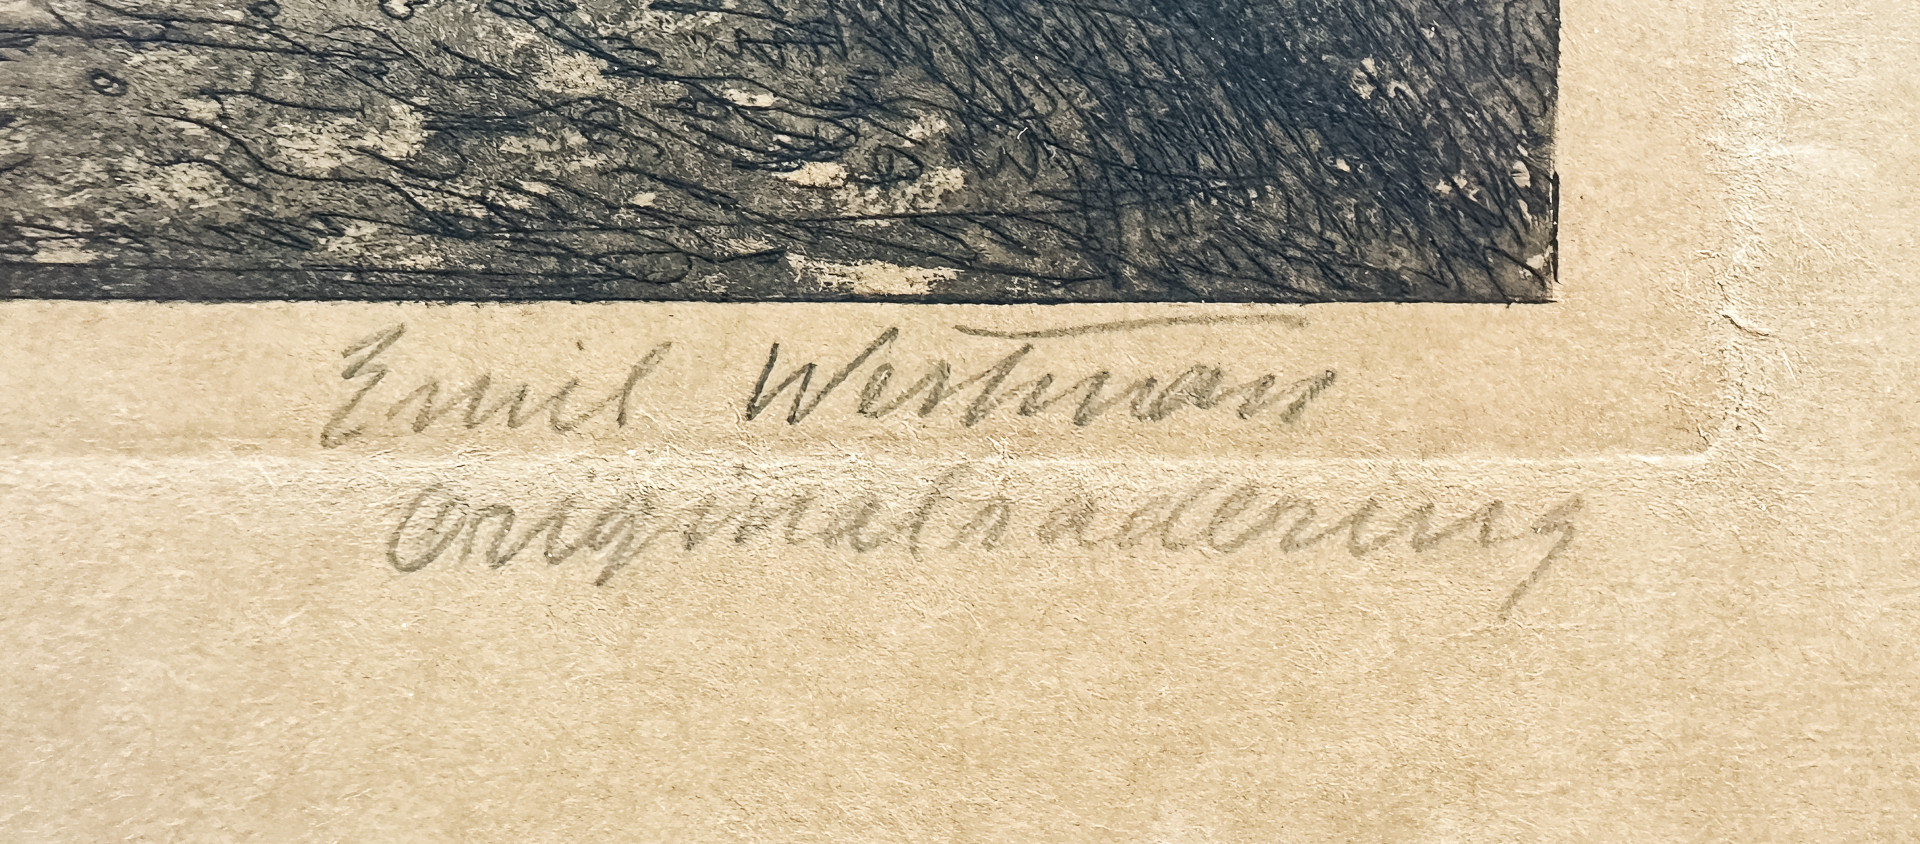 Emil Westman
Originalradering